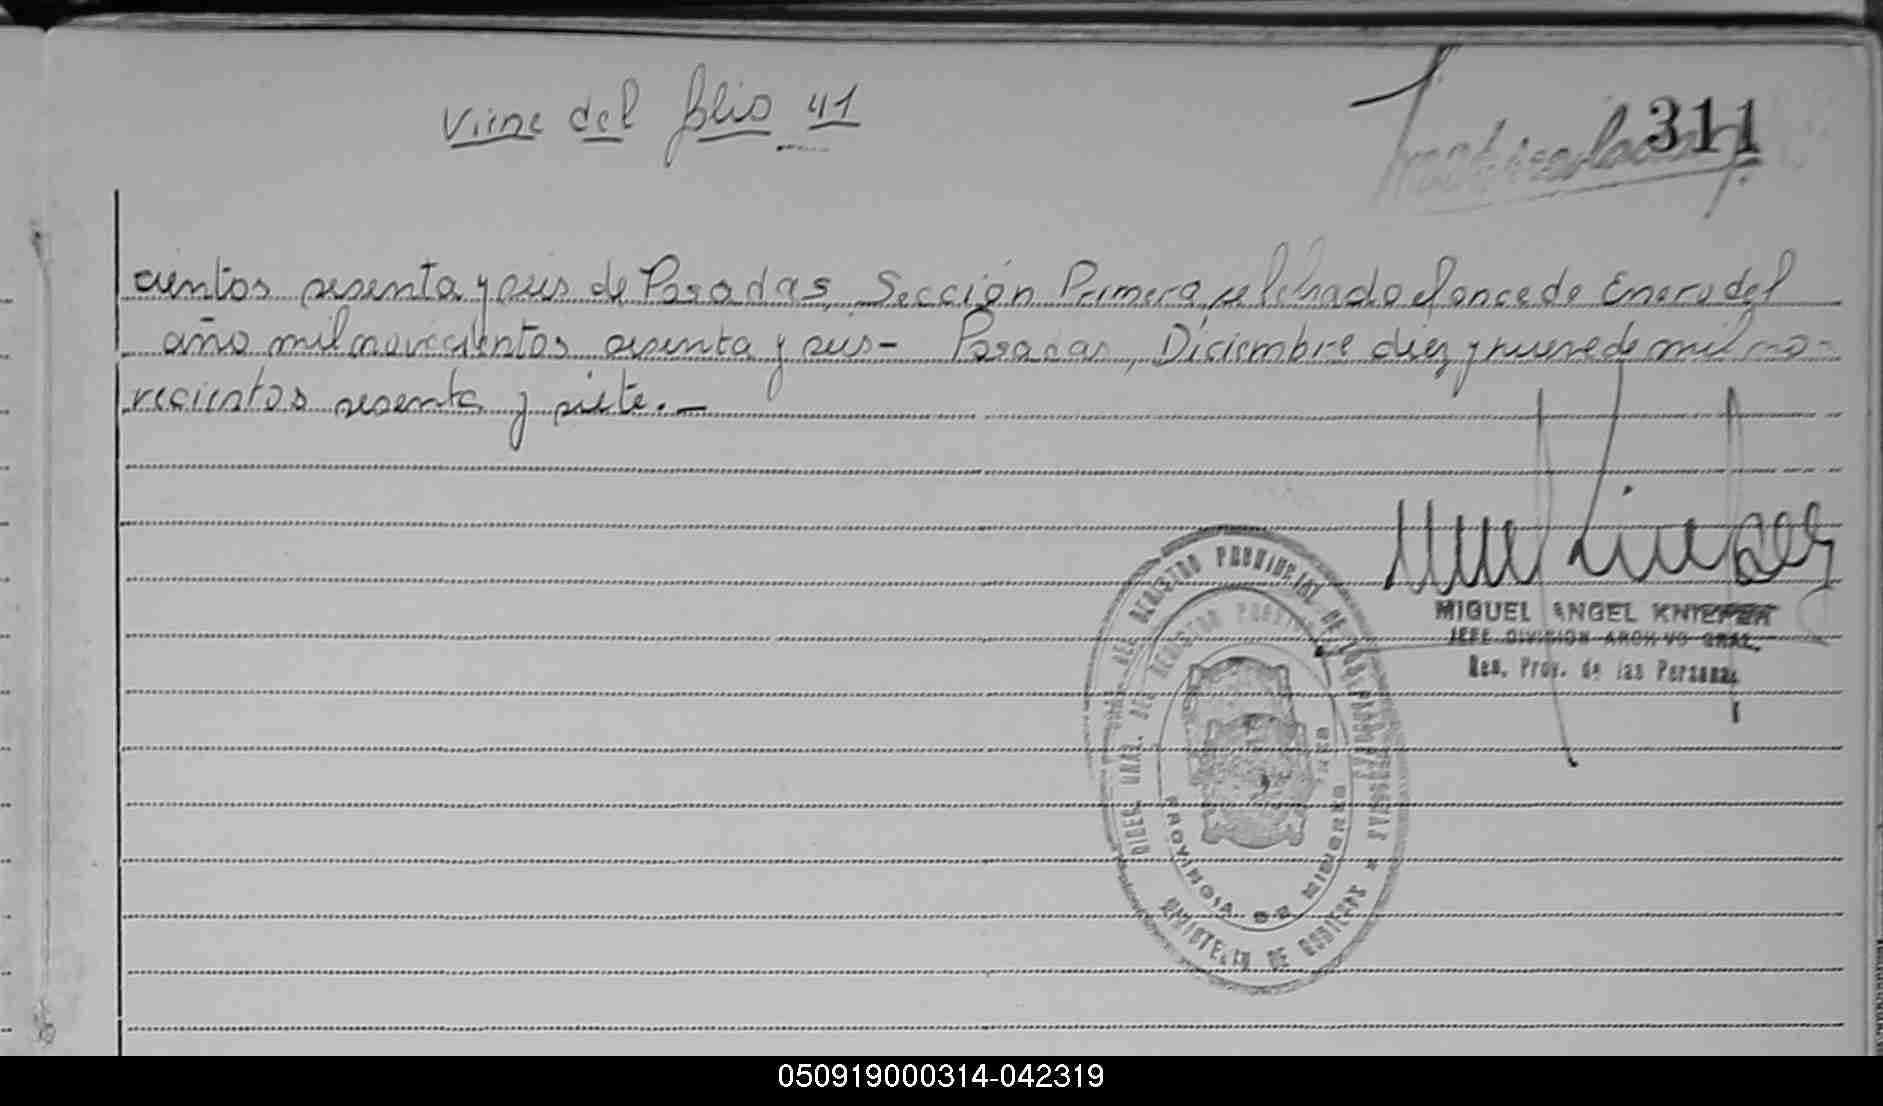 Viene del folio 41
311
cientos sesenta y seis de Posadas, Sección Primera, el once de Enero del
año mil novecientos sesenta y seis - Posadas, Diciembre diez y nueve de mil no-
vecientos sesenta y siete. -
MIGUEL ANGEL KNIEPER
JEFE DIVISION ARCHIVO GRAL.
Reg. Prov. de las Personas
DIREC. GRAL. DEL REGISTRO PROVINCIAL DE LAS PERSONAS
MINISTERIO DE GOBIERNO
PROVINCIA DE MISIONES
050919000314-042319